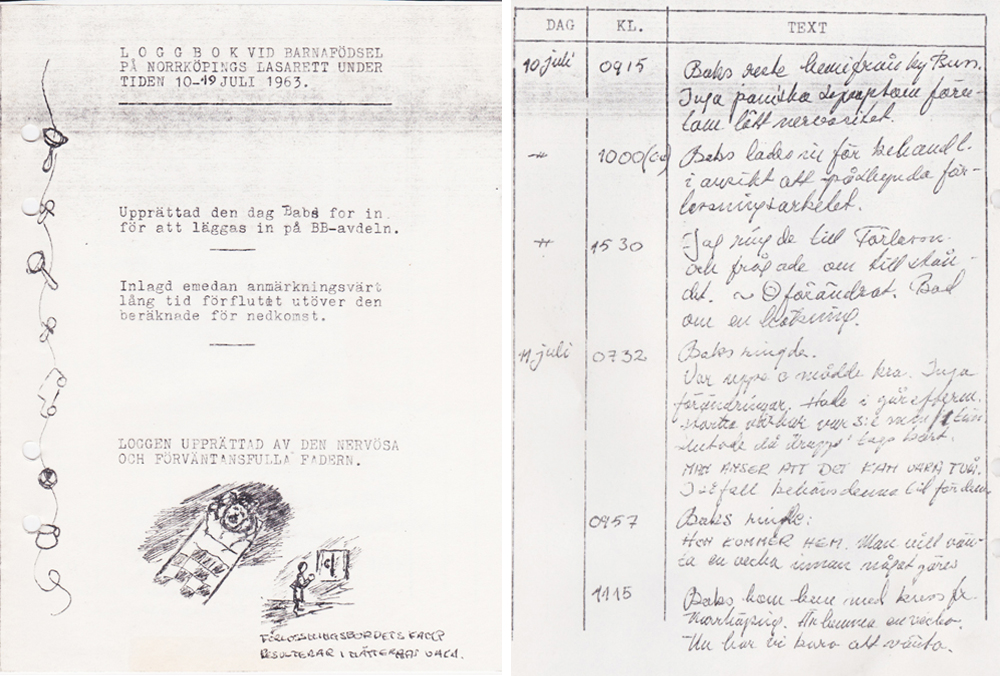 L O G G B O K VID BARNAFÖDSEL
PÅ NORRKÖPINGS LASARETT UNDER
TIDEN 10-19 JULI 1963.
Upprättad den dag Babs for in
för att läggas in på BB-avdeln.
Inlagd emedan anmärkningsvärt
lång tid förflutit utöver den
beräknade för nedkomst.
LOGGEN UPPRÄTTAD AV DEN NERVÖSA
OCH FÖRVÄNTANSFULLA FADERN.
FÖRLOSSNINGSBORDETS KAMP
RESULTERAR I NÄTTERNAS VAKA.
DAG KL. TEXT
10 juli 0915 Babs reste hemifrån
Inga paniska symptom föru-
tom lätt nervositet.
1000(ca) Babs lades in för behandl.
i avsikt att påskynda för-
lossningsarbetet.
1530 Jag ringde till Förlossn.
och frågade om tillstån-
det. ~ Oförändrat. Bad
om en hälsning.
11 juli 0732 Babs ringde.
Var uppe o mådde bra. Inga
förändringar. Hade i går efterm.
värkar var 5:e min
då
MAN ANSER ATT DET KAN VARA TVÅ.
I så fall behövs denna tid för dem
0957 Babs ringde:
HON KOMMER HEM. Man vill vän-
ta en vecka innan något göres
1115 Babs kom hem med buss fr.
Norrköping. en vecka.
Nu har vi bara att vänta.